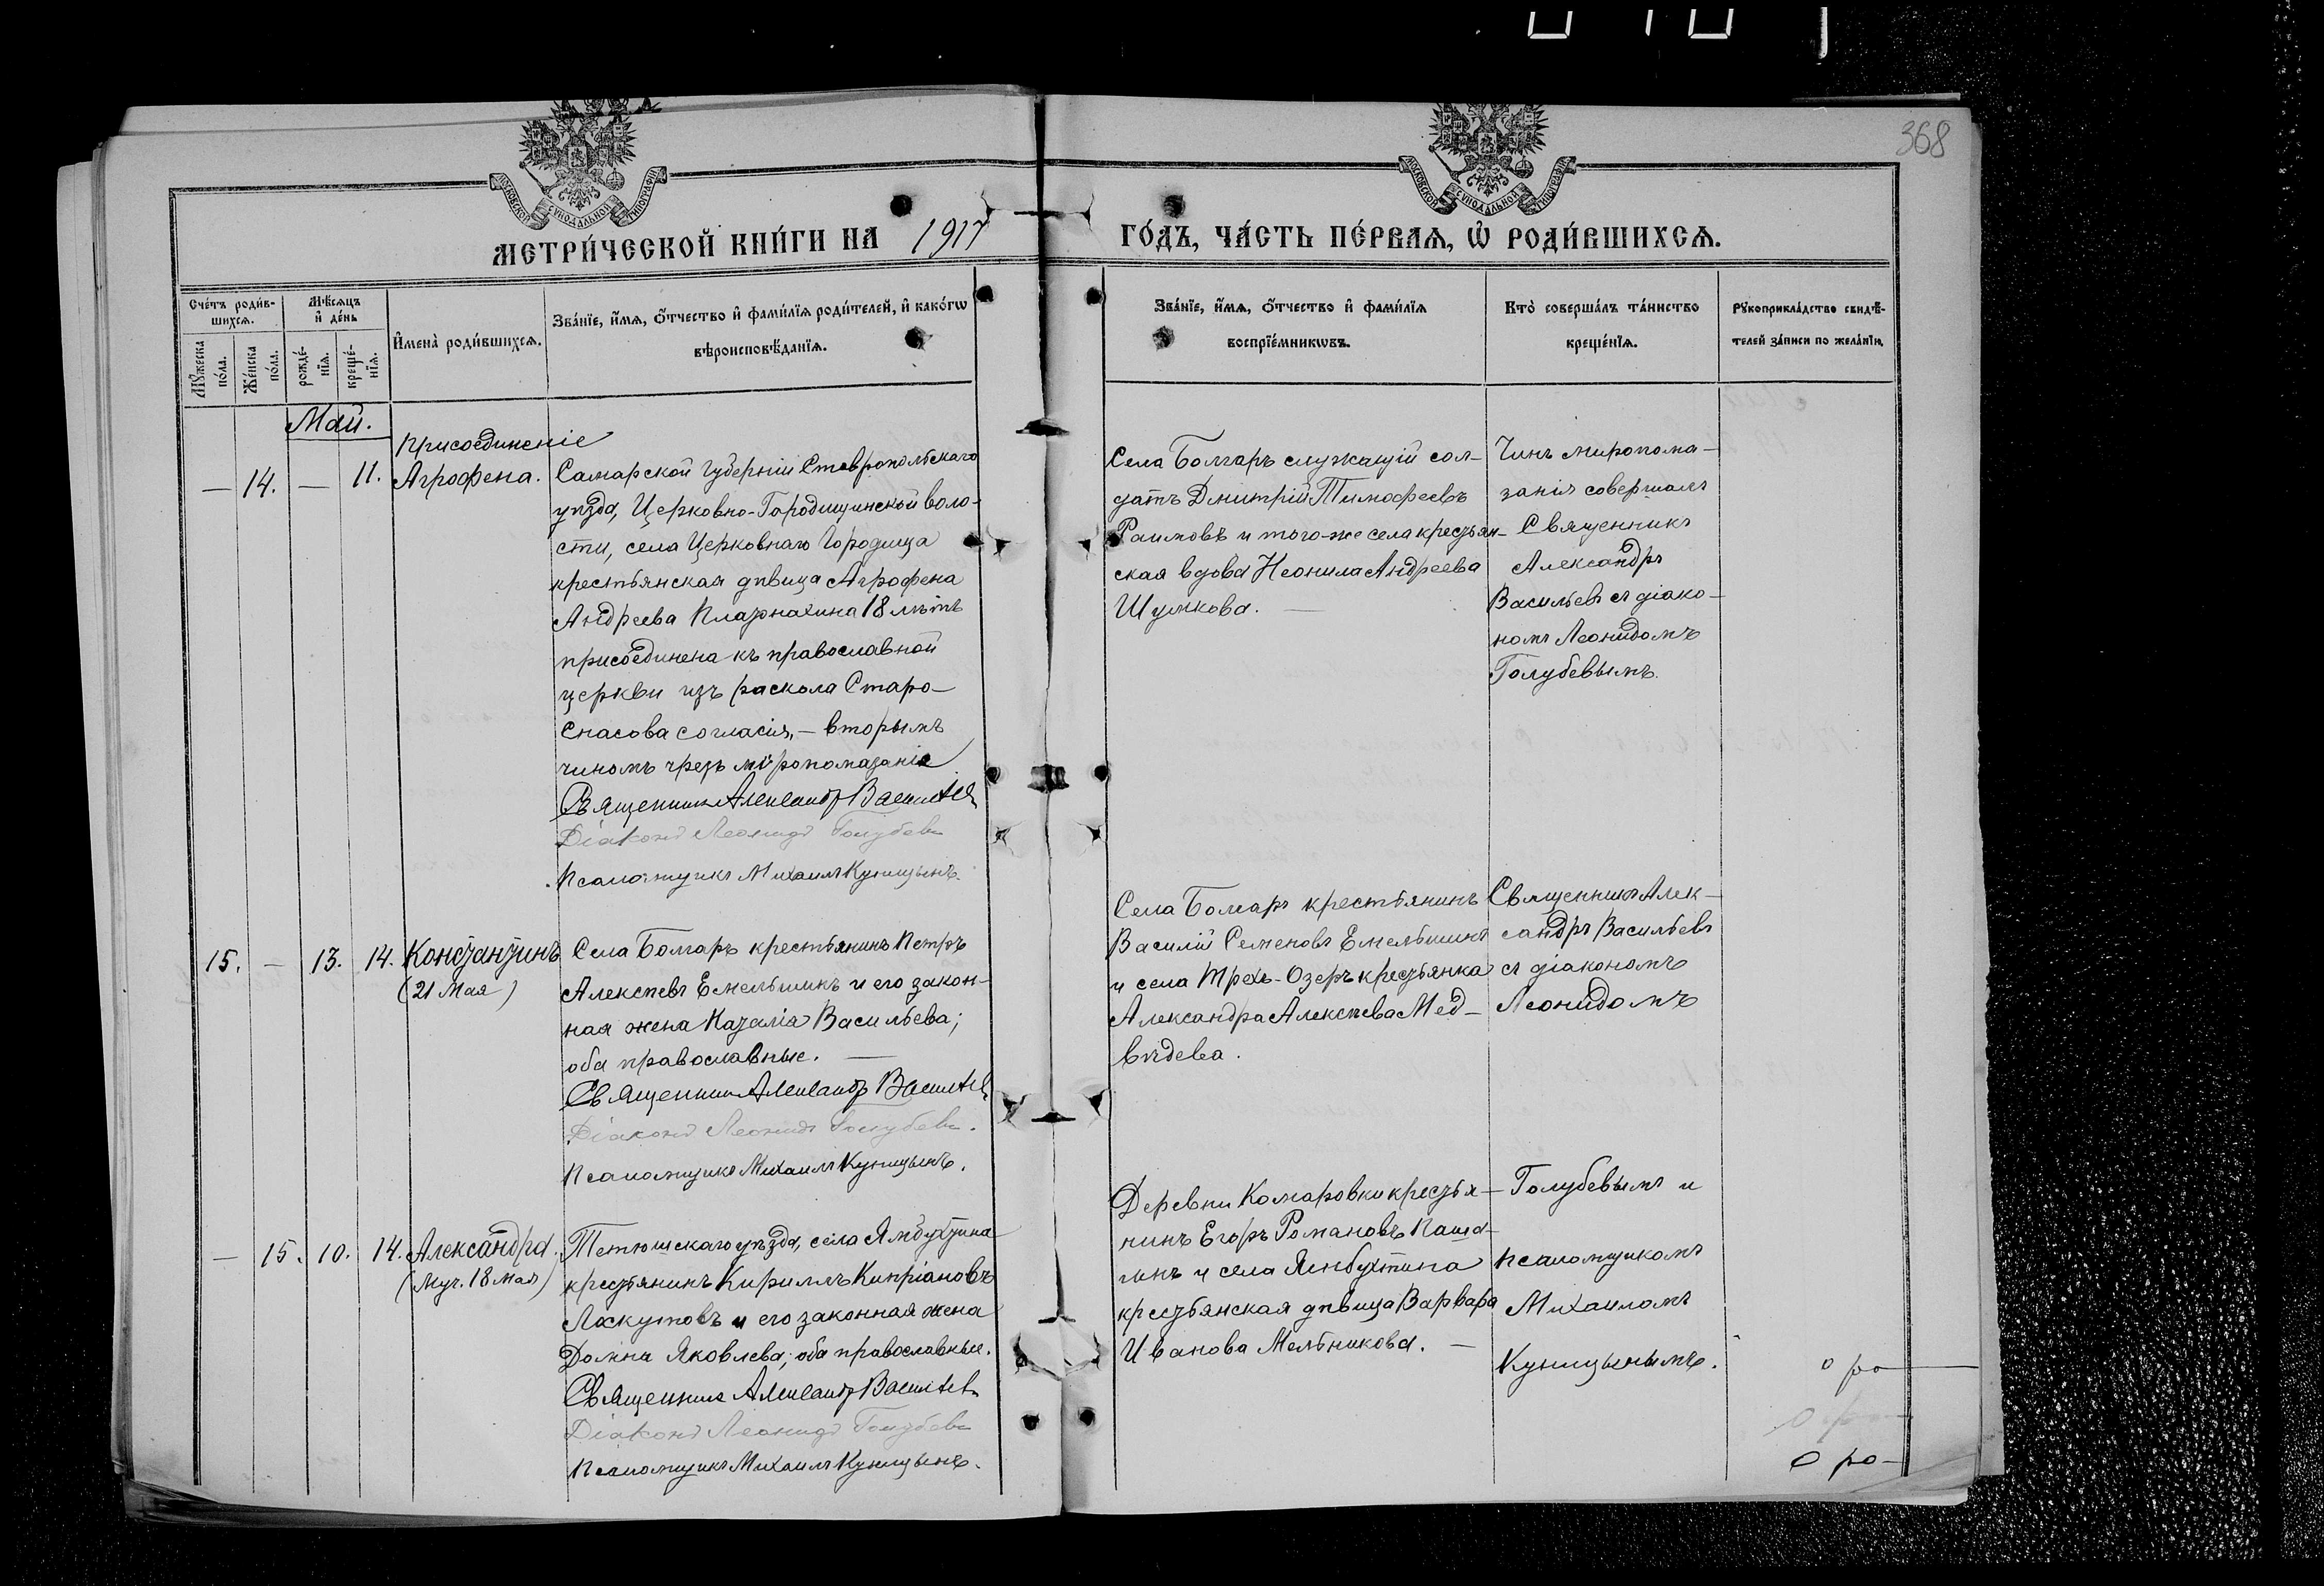 368
МОСКОВСКОЙ СУНОДАЛЬНОЙ ТИПОГРАФІИ
МОСКОВСКОЙ СУНОДАЛЬНОЙ ТИПОГРАФІИ
МЕТРИ́ЧЕСКОЙ КНИ́ГИ НА 1917 ГО́ДЪ, ЧА́СТЬ ПЕ́РВАѦ, Ѡ҆ РОДИ́ВШИХСѦ.
Сче́тъ роди́в-
шихсѧ.
Мѣ́сѧцъ
и҆ де́нь
Мꙋ́жеска
по́ла.
Же́нска
по́ла.
рожде́-
нїѧ.
креще́-
нїѧ.
И҆мена̀ роди́вшихсѧ.
Зва́нїе, и҆́мѧ, ѻ҆́тчество и҆ фами́лїѧ роди́телей, и҆ како́гѡ
вѣроисповѣ́данїѧ.
Зва́нїе, и҆́мѧ, ѻ҆́тчество и҆ фами́лїѧ
воспрїе́мникѡвъ.
Кто̀ соверша́лъ та́инство
креще́нїѧ.
Рꙋкоприкла́дство свидѣ́-
телей за́писи по жела́нїю.
Май.
Присоединеніе
— 14. — 11. Агрофена.
Самарской губерніи Ставропольскаго
уѣзда, Церковно-Городищинской воло-
сти, села Церковнаго Городища
крестьянская дѣвица Агрофена
Андреева 18 лѣтъ
присоединена къ православной
церкви изъ раскола Старо-
Спасова согласія, — вторымъ
чиномъ чрезъ мѵропомазаніе
Священникъ Александръ Васильевъ
Діаконъ Леонидъ Голубевъ
Псаломщикъ Михаилъ Куницынъ.
Села Болгаръ служащій сол-
датъ Дмитрій Тимофеевъ
Раимовъ и того-же села крестьян-
ская вдова Неонила Андреева
Шумкова. —
Чинъ миропома-
занія совершалъ
Священникъ
Александръ
Васильевъ съ діако-
номъ Леонидомъ
Голубевымъ.
15. — 13. 14. Константинъ
(21 Мая)
Села Болгаръ крестьянинъ Петръ
Алексѣевъ Емельшинъ и его закон-
ная жена Наталія Васильева;
оба православные. —
Священникъ Александръ Васильевъ
Діаконъ Леонидъ Голубевъ.
Псаломщикъ Михаилъ Куницынъ.
Села Болгаръ крестьянинъ
Василій Семеновъ Емельшинъ
и села Трехъ-Озеръ крестьянка
Александра Алексѣева Мед-
вѣдева.
Священникъ Алек-
сандръ Васильевъ
съ діакономъ
Леонидомъ
— 15. 10. 14. Александра.
(Муч. 18 мая)
Тетюшскаго уѣзда, села Ямбухтина
крестьянинъ Кириллъ Кипріановъ
Лоскутовъ и его законная жена
Домна Яковлева; оба православные.
Священникъ Александръ Васильевъ
Діаконъ Леонидъ Голубевъ
Псаломщикъ Михаилъ Куницынъ.
Деревни Комаровки крестья-
нинъ Егоръ Романовъ Паша-
нинъ и села Ямбухтина
крестьянская дѣвица Варвара
Иванова Мельникова. —
Голубевымъ и
псаломщикомъ
Михаиломъ
Куницынымъ.